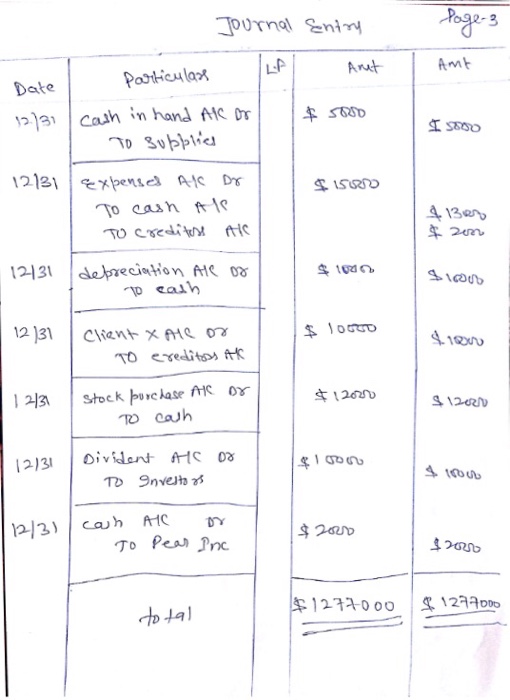 Journal Entry Page-3
Date Particulars L.F Amt Amt
12/31 Cash in hand A/C Dr $ 5000
To Supplies $ 5000
12/31 Expenses A/C Dr $ 15000
To cash A/C $ 13000
To creditors A/C $ 2000
12/31 depreciation A/C Dr $ 10000
To cash $ 10000
12/31 Client X A/C Dr $ 10000
To creditors A/C $ 10000
12/31 Stock purchase A/C Dr $ 12000
To cash $ 12000
12/31 Divident A/C Dr $ 10000
To Investors $ 10000
12/31 cash A/C Dr $ 2000
To Pear Inc $ 2000
total $ 1277000 $ 1277000